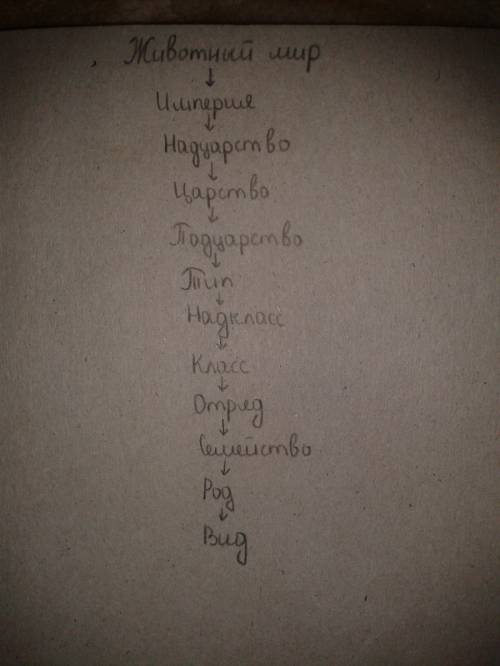 Животный мир
↓
Империя
↓
Надцарство
↓
Царство
↓
Подцарство
↓
Тип
↓
Надкласс
↓
Класс
↓
Отряд
↓
Семейство
↓
Род
↓
Вид